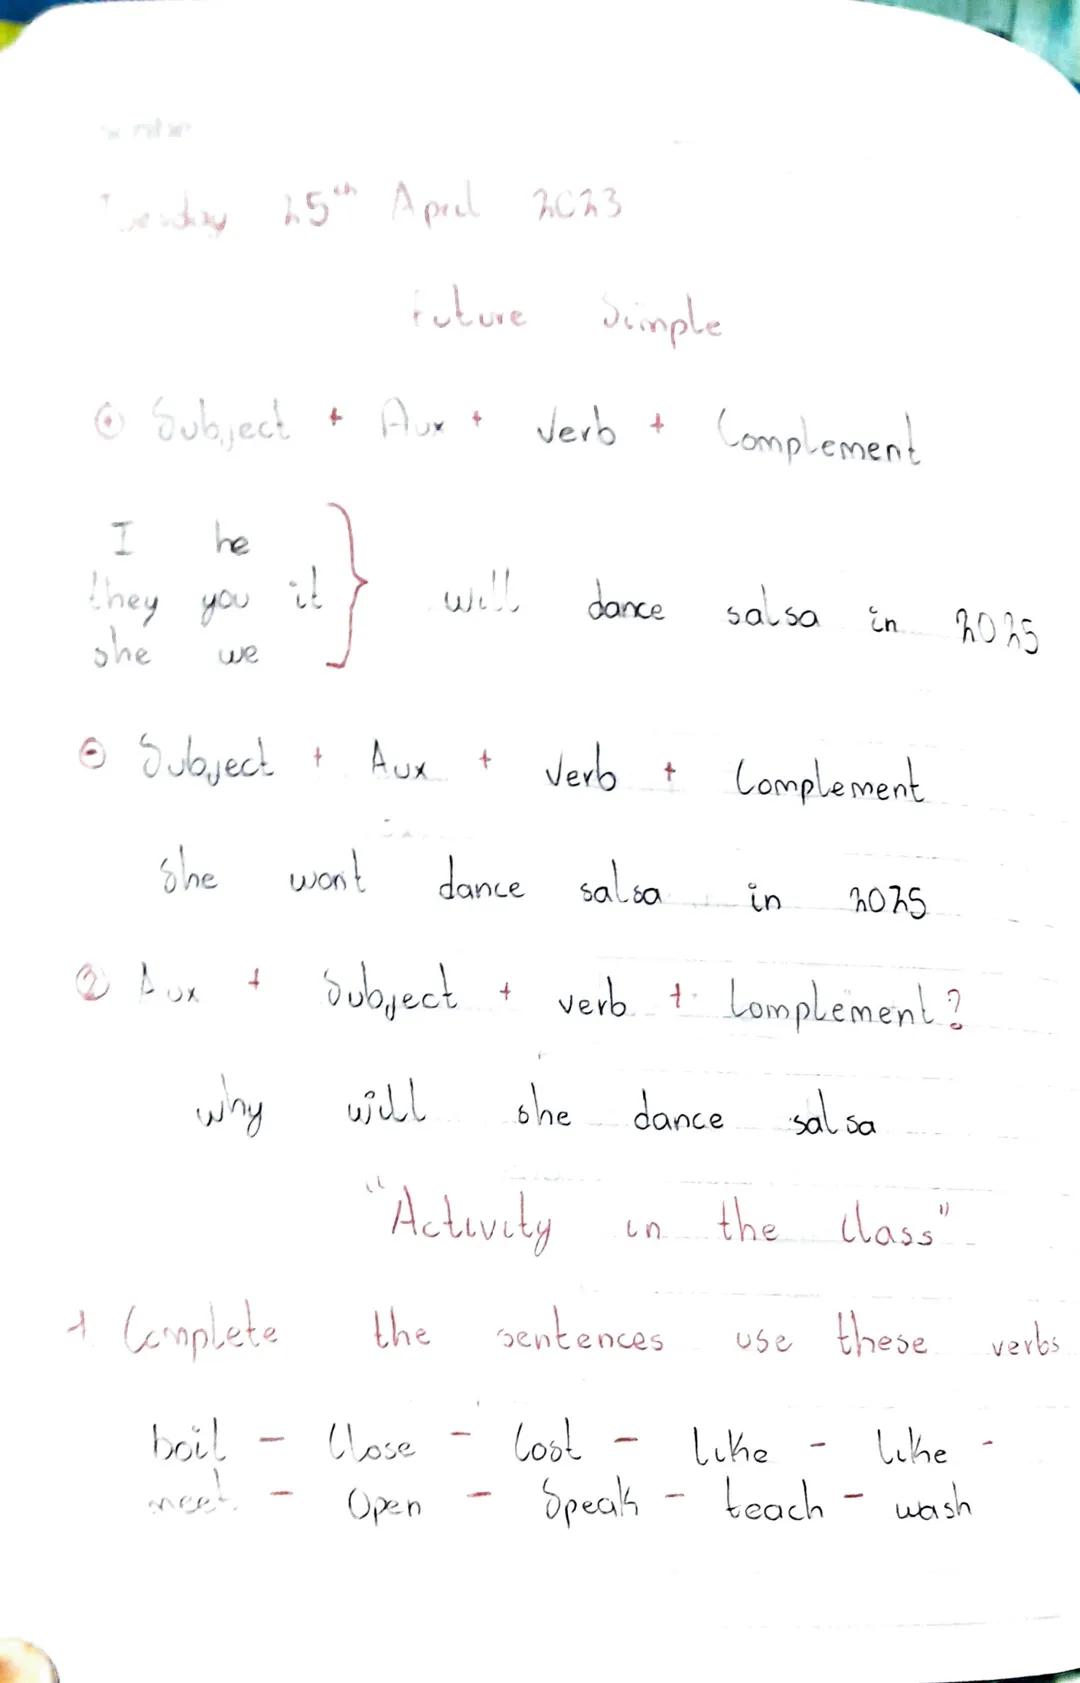 Tuesday 25th April 2023
Future Simple
⊕ Subject + Aux + Verb + Complement
I he
they you it } will dance salsa in 2025
she we
⊖ Subject + Aux + Verb + Complement
She won't dance salsa in 2025
? Aux + Subject + verb + Complement?
why will she dance salsa
"Activity in the Class"
1 Complete the sentences use these verbs
boil - Close - Cost - like - like -
meet - Open - Speak - teach - wash